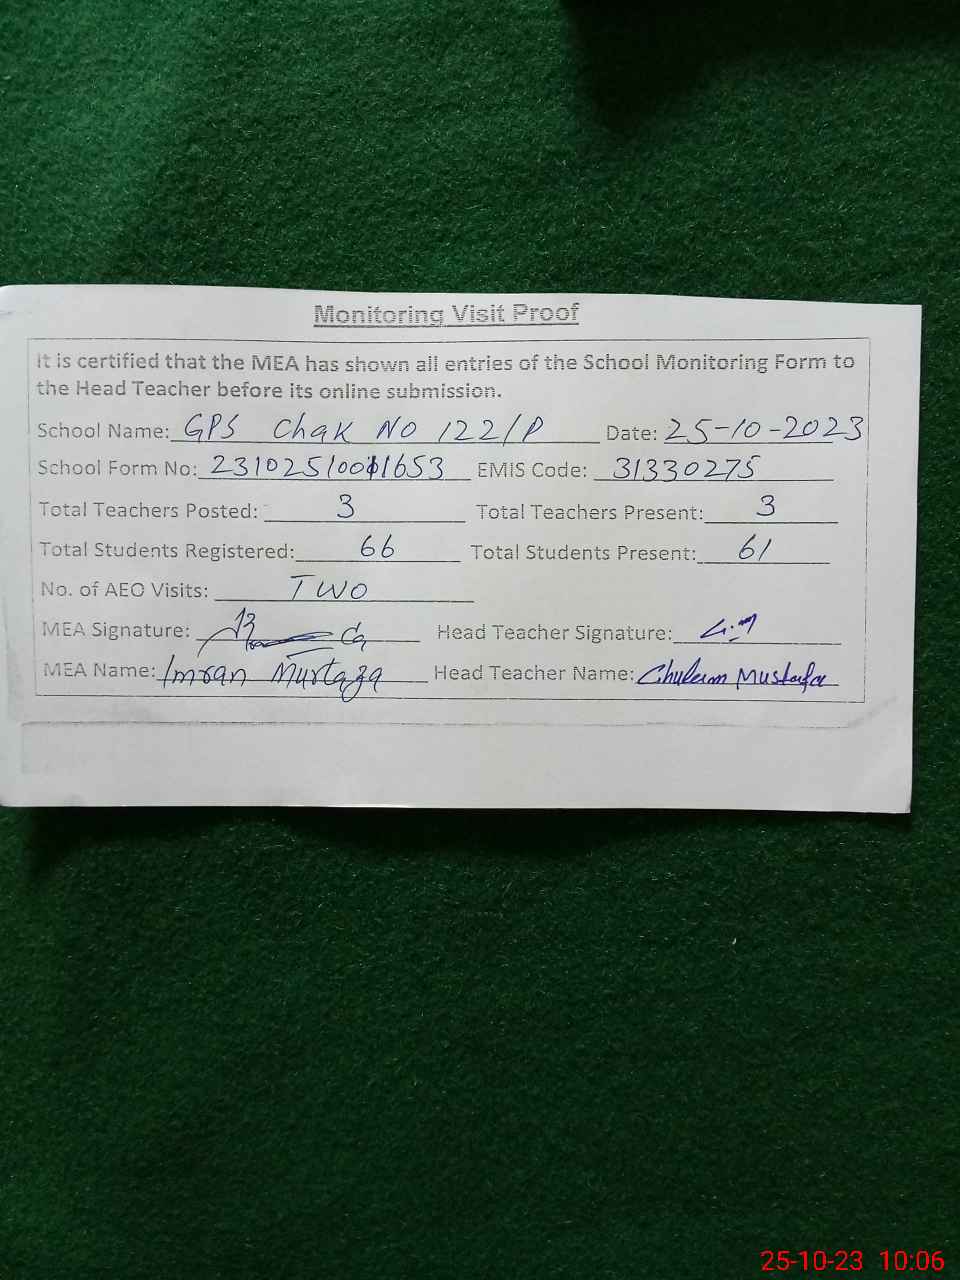 Monitoring Visit Proof
It is certified that the MEA has shown all entries of the School Monitoring Form to
the Head Teacher before its online submission.
School Name: GPS Chak No 122/P Date: 25-10-2023
School Form No: EMIS Code: 31330275
Total Teachers Posted: 3 Total Teachers Present: 3
Total Students Registered: 66 Total Students Present: 61
No. of AEO Visits: TWO
MEA Signature: Head Teacher Signature: G.M
MEA Name: Imran Murtaza Head Teacher Name: Ghulam Mustafa
25-10-23 10:06